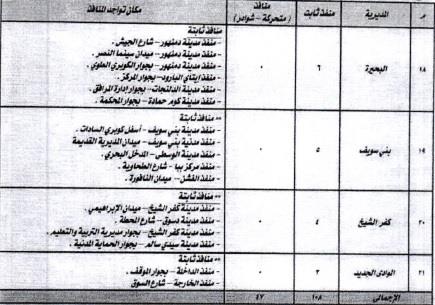 م
المديرية
منفذ ثابت
منافذ
( متحركة - شوادر )
مكان تواجد المنافذ
١٨
البحيرة
٦
٠
منافذ ثابتة
- منفذ مدينة دمنهور – شارع الجيش .
- منفذ مدينة دمنهور – ميدان سينما النصر .
- منفذ مدينة دمنهور – بجوار الكوبري العلوي .
- منفذ إيتاي البارود – بجوار المركز .
- منفذ مدينة الدلنجات – بجوار إدارة المرافق .
- منفذ مدينة كوم حمادة – بجوار المحكمة .
١٩
بني سويف
٥
٠
** منافذ ثابتة
- منفذ مدينة بني سويف – أسفل كوبري السادات .
- منفذ مدينة بني سويف – ميدان المديرية القديمة
- منفذ مدينة الوسطى – المدخل البحري .
- منفذ مركز ببا – شارع الطحاوية .
- منفذ الفشن – ميدان النافورة .
٢٠
كفر الشيخ
٤
٠
** منافذ ثابتة
- منفذ مدينة كفر الشيخ – ميدان الإبراهيمي .
- منفذ مدينة دسوق – شارع المحطة .
- منفذ مدينة كفر الشيخ – بجوار مديرية التربية والتعليم .
- منفذ مدينة سيدي سالم – بجوار الحماية المدنية .
٢١
الوادى الجديد
٢
٠
** منافذ ثابتة
- منفذ الداخلة – بجوار الموقف .
- منفذ الخارجة – شارع السوق
الإجمالى
١٠٨
٤٧